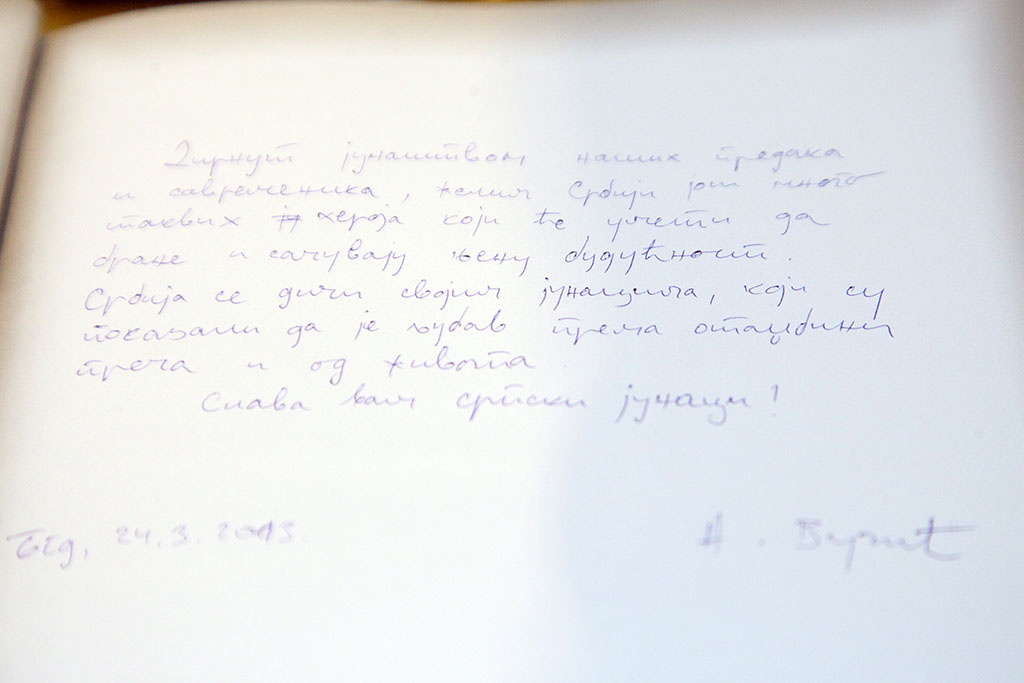 Дирнут јунаштвом наших предака
и савременика, желим Србији још много
таквих хероја који ће умети да
бране и сачувају њену будућност.
Србија се дичи својим јунацима, који су
показали да је љубав према отаџбини
преча и од живота.
Слава вам српски јунаци!
Бгд, 24.3.2013.
А. Вучић